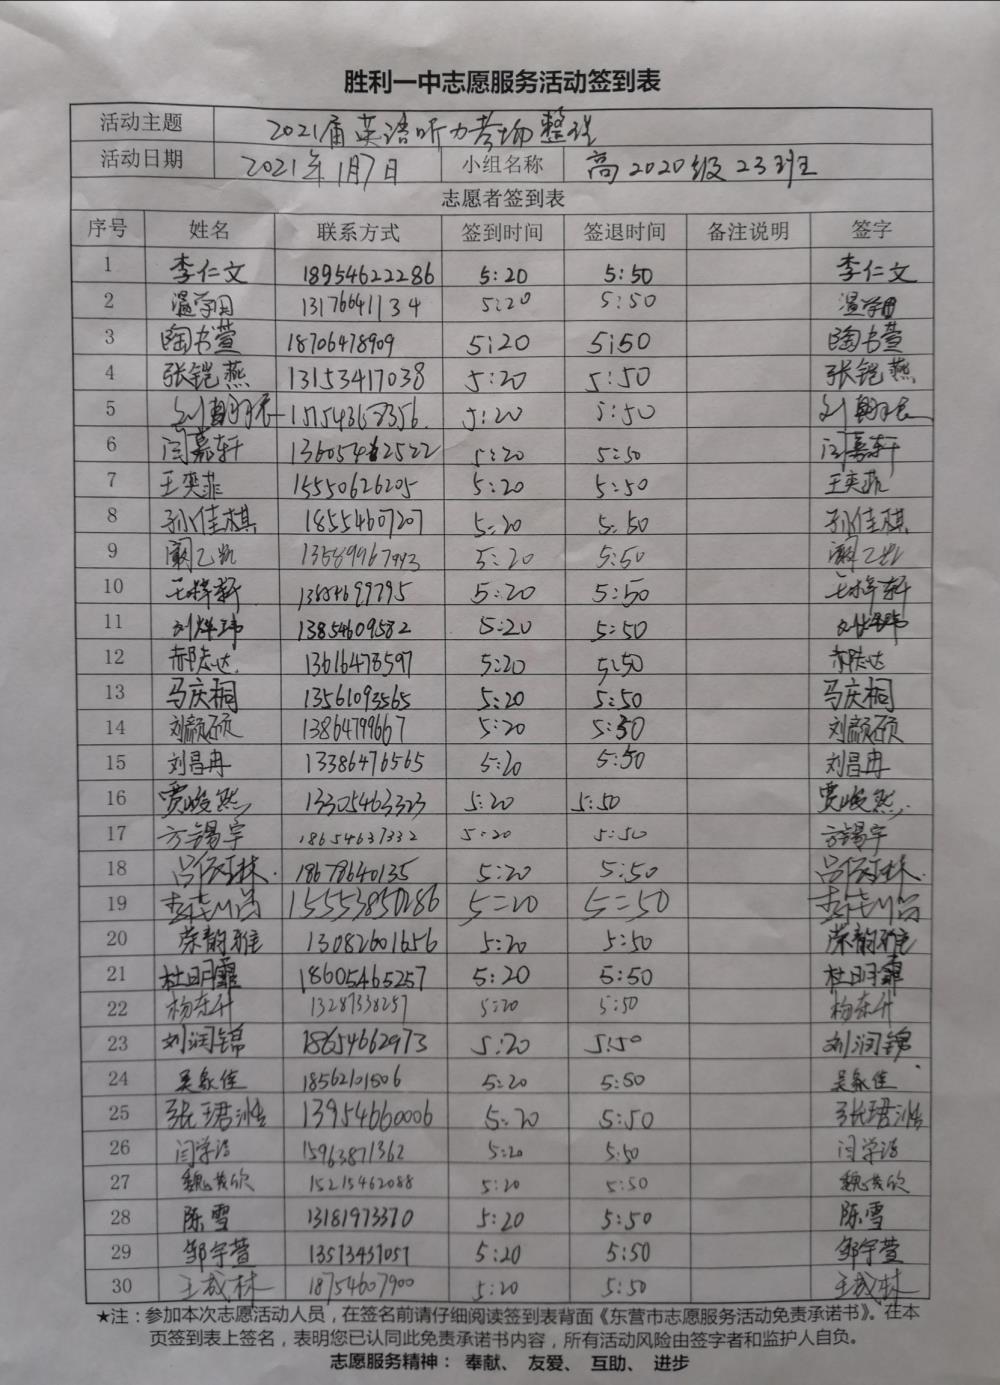 胜利一中志愿服务活动签到表
活动主题 2021届英语听力考场整理
活动日期 2021年1月7日 小组名称 高2020级23班
志愿者签到表
序号 姓名 联系方式 签到时间 签退时间 备注说明 签字
1 李仁文 18954622286 5:20 5:50 李仁文
2 13176641134 5:20 5:50
3 陶书萱 18706478909 5:20 5:50 陶书萱
4 张铠燕 13153417038 5:20 5:50 张铠燕
5 5:20 5:50
6 闫嘉轩 5:20 5:50 闫嘉轩
7 王奕菲 15550626205 5:20 5:50 王奕菲
8 孙佳祺 18554607207 5:20 5:50 孙佳祺
9 5:20 5:50
10 王梓轩 5:20 5:50 王梓轩
11 刘烨玮 13854609582 5:20 5:50 刘烨玮
12 郝志达 13616478597 5:20 5:50 郝志达
13 马庆桐 13561093565 5:20 5:50 马庆桐
14 刘颜硕 13864799667 5:20 5:50 刘颜硕
15 刘昌冉 13386476565 5:20 5:50 刘昌冉
16 贾峻然 13305463323 5:20 5:50 贾峻然
17 方锡宇 18654637332 5:20 5:50 方锡宇
18 18678640135 5:20 5:50
19 15553850286 5:20 5:50
20 荣韵雅 13082601656 5:20 5:50 荣韵雅
21 杜明霏 18605465257 5:20 5:50 杜明霏
22 杨东升 13287338257 5:20 5:50 杨东升
23 刘润锦 18654662973 5:20 5:50 刘润锦
24 吴家佳 18562101506 5:20 5:50 吴家佳
25 13954660006 5:20 5:50
26 闫学浩 15963871362 5:20 5:50 闫学浩
27 15215462088 5:20 5:50
28 陈雪 13181973370 5:20 5:50 陈雪
29 邹宇萱 13513431051 5:20 5:50 邹宇萱
30 王成林 18754607900 5:20 5:50 王成林
★注：参加本次志愿活动人员，在签名前请仔细阅读签到表背面《东营市志愿服务活动免责承诺书》。在本
页签到表上签名，表明您已认同此免责承诺书内容，所有活动风险由签字者和监护人自负。
志愿服务精神： 奉献、 友爱、 互助、 进步